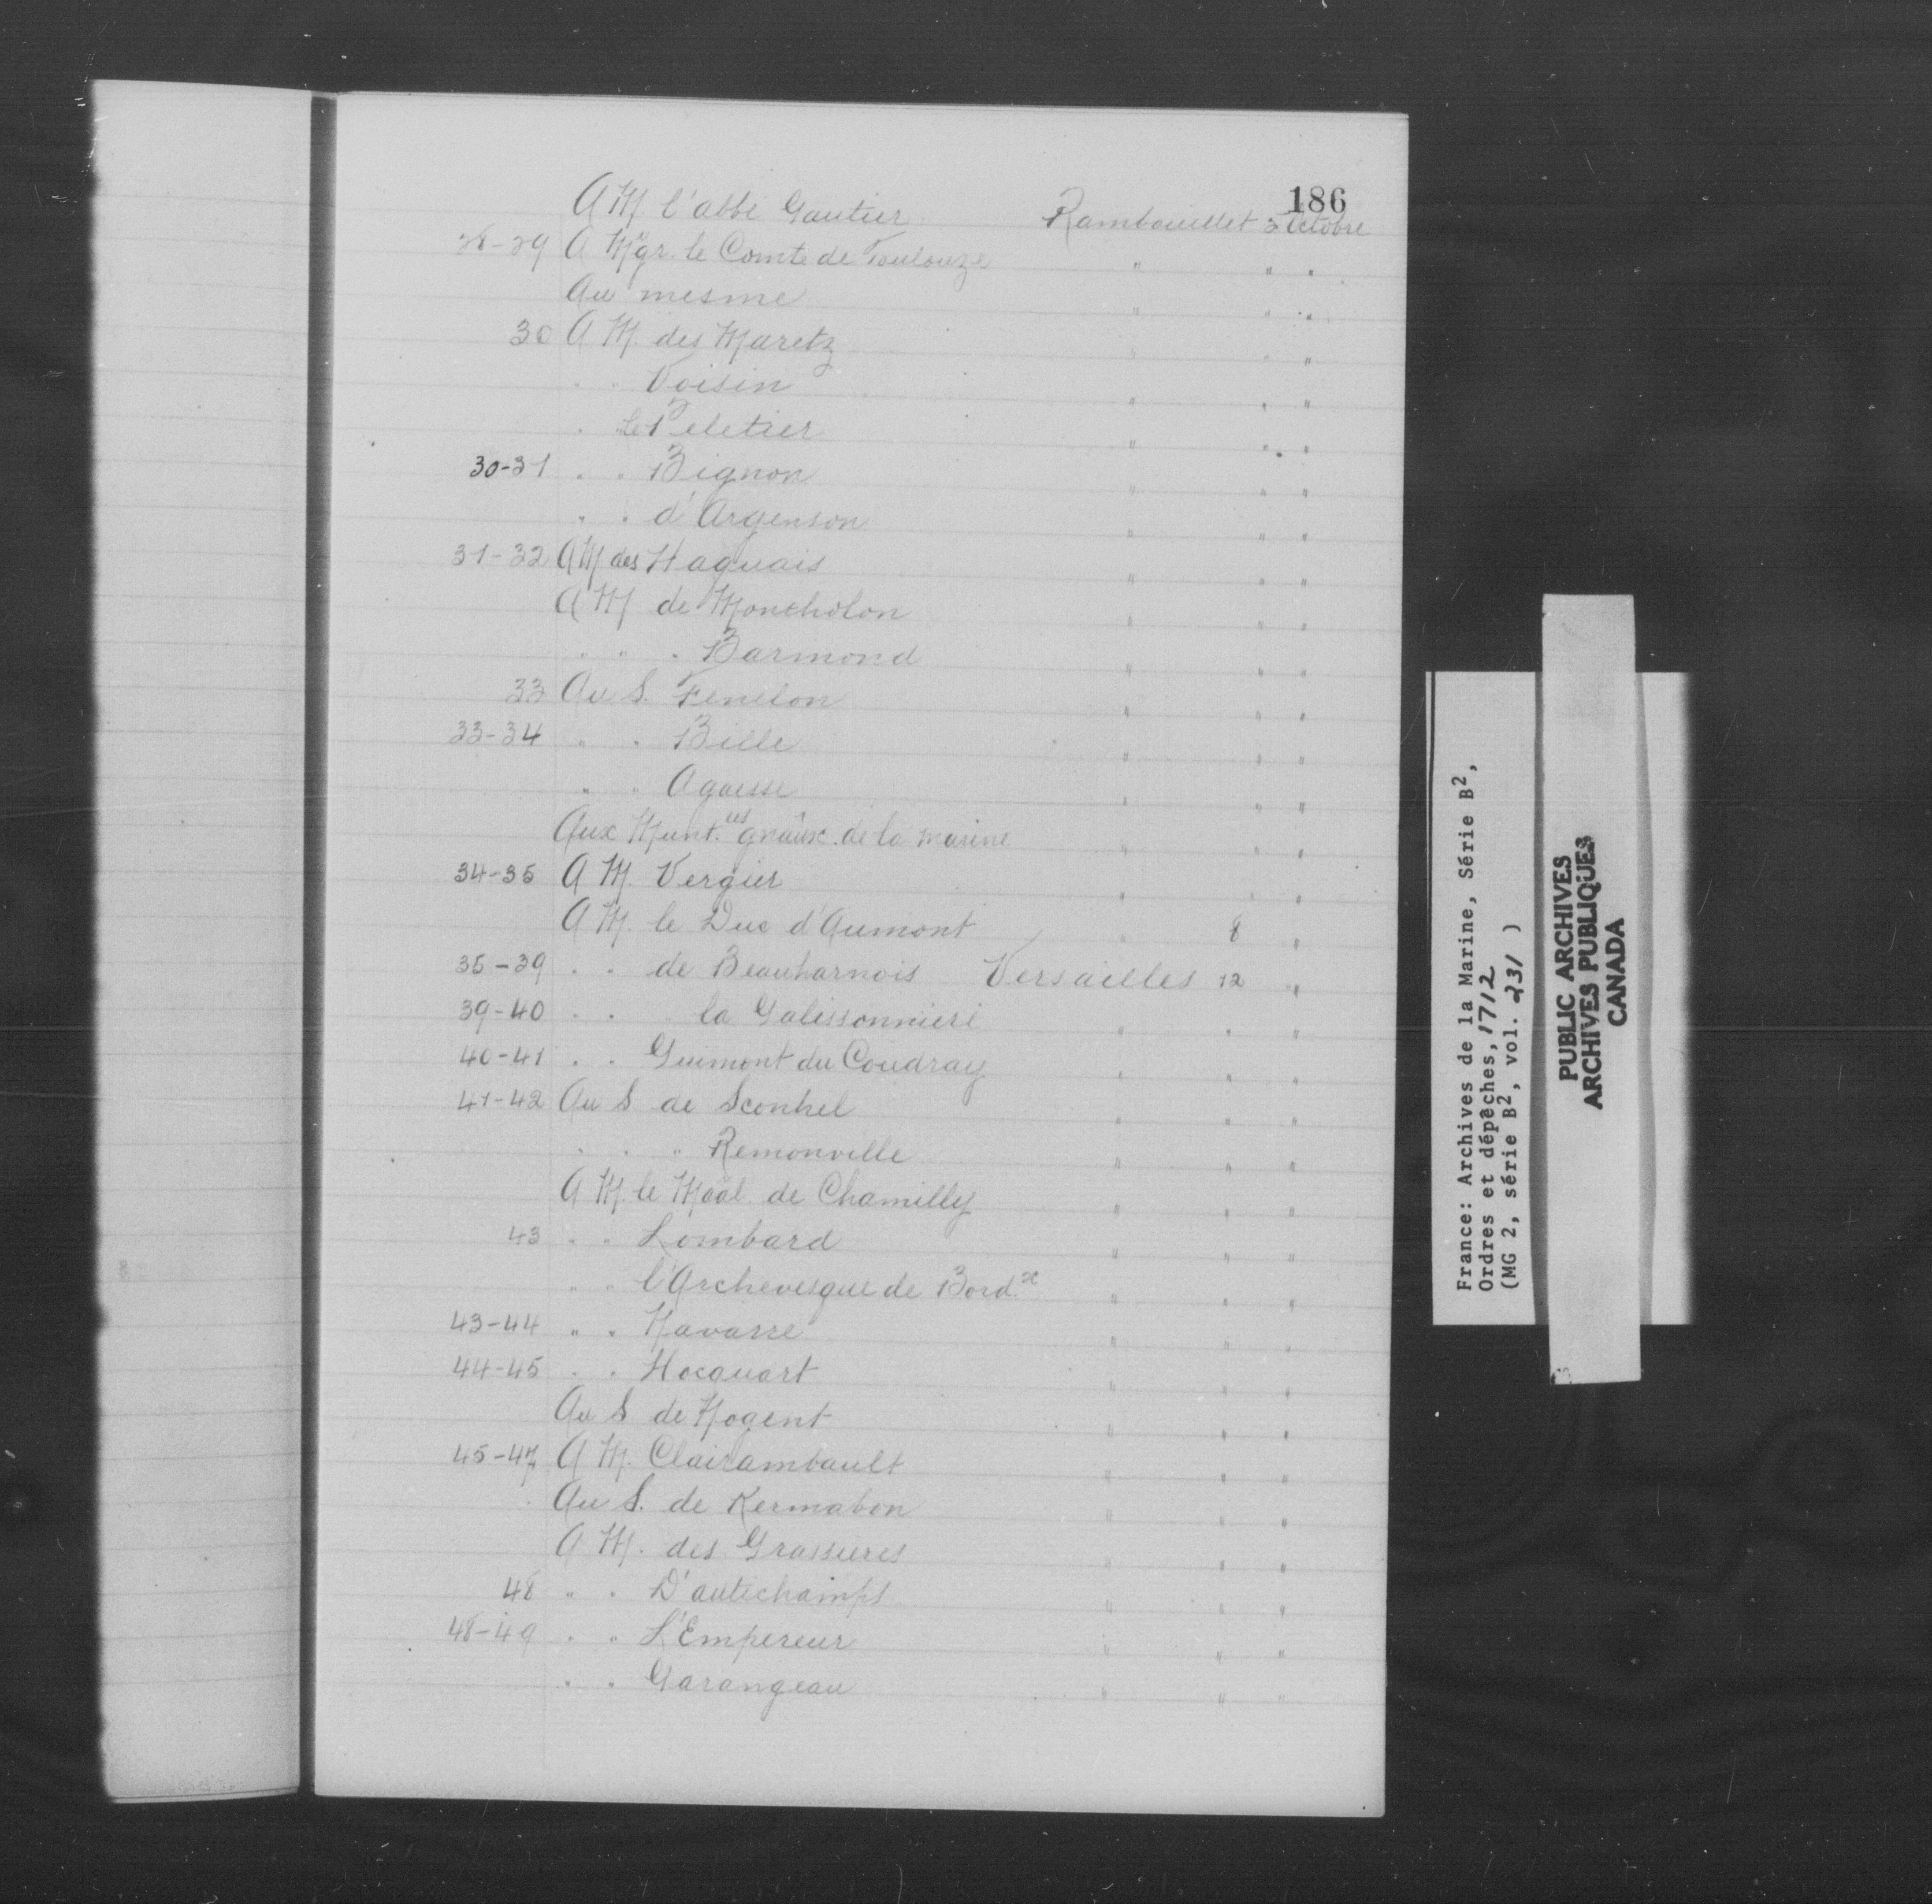 186
A M. l'abbé Gautier Rambouillet 3 Octobre
28-29 A Mgr. le Comte de Toulouze " " "
Au mesme " " "
30 A M. des Maretz " " "
" " Voisin " " "
" Le Peletier " " "
30-31 " " Bignon " " "
" " d'Argenson " " "
31-32 A M des Haguais " " "
A M de Montholon " " "
" " " Barmond " " "
33 Au S. Fenelon " " "
33-34 " " Bille " " "
" " Agaesse " " "
Aux Munt.res gnâux de la marine " " "
34-35 A M. Vergier " " "
A M. le Duc d'Aumont " 8 "
35-39 " " de Beauharnois Versailles 12 "
39-40 " " la Galissonniere " " "
40-41 " " Guimont du Coudray " " "
41-42 Au S de Sconhel " " "
" " " Remonville " " "
A M. le Maâl de Chamilly " " "
43 " " Lombard " " "
" " l'Archevesque de Bord.x " " "
43-44 " " Navarre " " "
44-45 " " Hocquart " " "
Au S de Nogent " " "
45-47 A M. Clairambault " " "
Au S. de Kermabon " " "
A M. des Grassieres " " "
48 " " D'autichamps " " "
48-49 " " L'Empereur " " "
" " Garangeau " " "
France: Archives de la Marine, Série B2,
Ordres et dépêches, 1712
(MG 2, série B2, vol. 231 )
PUBLIC ARCHIVES
ARCHIVES PUBLIQUES
CANADA